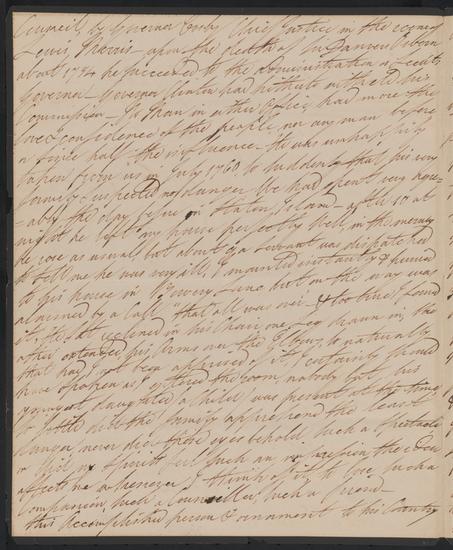 Council, by Governor Cosby Chief Justice in the room of
Lewis Morris — upon the death of Sir Danvers Osborn
about 1754 he succeeded to the administration as Lieut.
Governor — Governor Clinton had hitherto withheld his
Commission — No Man in either Office had more the
love & confidence of the people, nor any man before
or since half the influence — He was unhappily
taken from us in July 1760 so sudden that his very
family suspected no danger We had spent very agree-
-ably the day before on Staten Island — after 10 at
night he left my house perfectly well, in the morning
he rose as usual, but about a servant was dispatched
to tell me he was very ill, I mounted instantly & hurried
to his house in Bowery Lane but on the way was
alarmed by a call "that all was over" & too true I found
it, He sat reclined in his Chair one Leg drawn in, the
other extended, his Arms over the Elbows, so naturally
that had I not been apprised of it, I certainly should
have spoken as I entered the room, nobody but his
youngest daughter a child was present at the time
So little did the family apprehend the least
danger, never did these eyes behold, such a spectacle
or did my Spirit feel such an impression the
affects me whenever I think of it to lose such a
Companion, such a Counsellor, such a friend —
this accomplished person & ornament to his Country